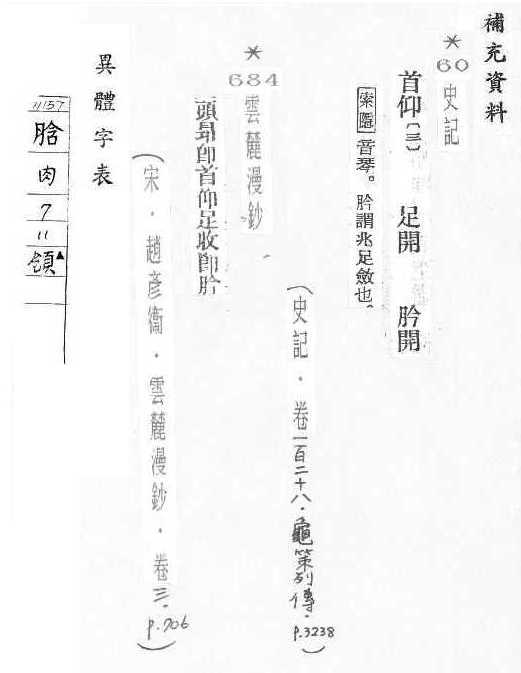 補充資料
*
60
史記
首仰〔三〕 足開 肣開
索隱 音琴。肣謂兆足斂也。
（史記．卷一百二十八．龜策列傳．p.3238）
*
684
雲麓漫鈔
頭昂卽首仰足收卽肣
（宋．趙彥衞．雲麓漫鈔．卷三．p.706）
異體字表
11157
肣
肉
7
11
頷▲